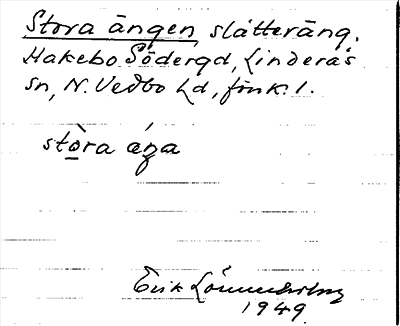 Stora ängen, slåtteräng.
Hakebo Södergd, Linderås
sn, N. Vedbo hd, Jönk. l.
stòra áŋa
Erik Lönnerholm
1949.